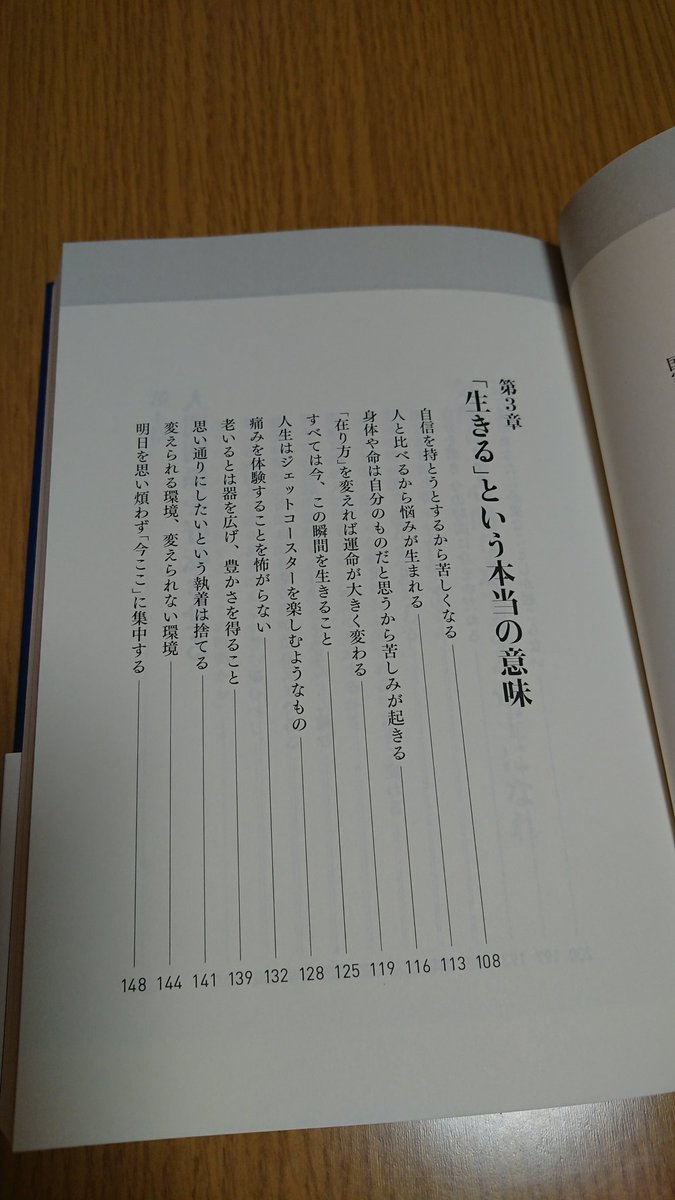 第3章
「生きる」という本当の意味
自信を持とうとするから苦しくなる 108
人と比べるから悩みが生まれる 113
身体や命は自分のものだと思うから苦しみが起きる 116
「在り方」を変えれば運命が大きく変わる 119
すべては今、この瞬間を生きること 125
人生はジェットコースターを楽しむようなもの 128
痛みを体験することを怖がらない 132
老いるとは器を広げ、豊かさを得ること 139
思い通りにしたいという執着は捨てる 141
変えられる環境、変えられない環境 144
明日を思い煩わず「今ここ」に集中する 148